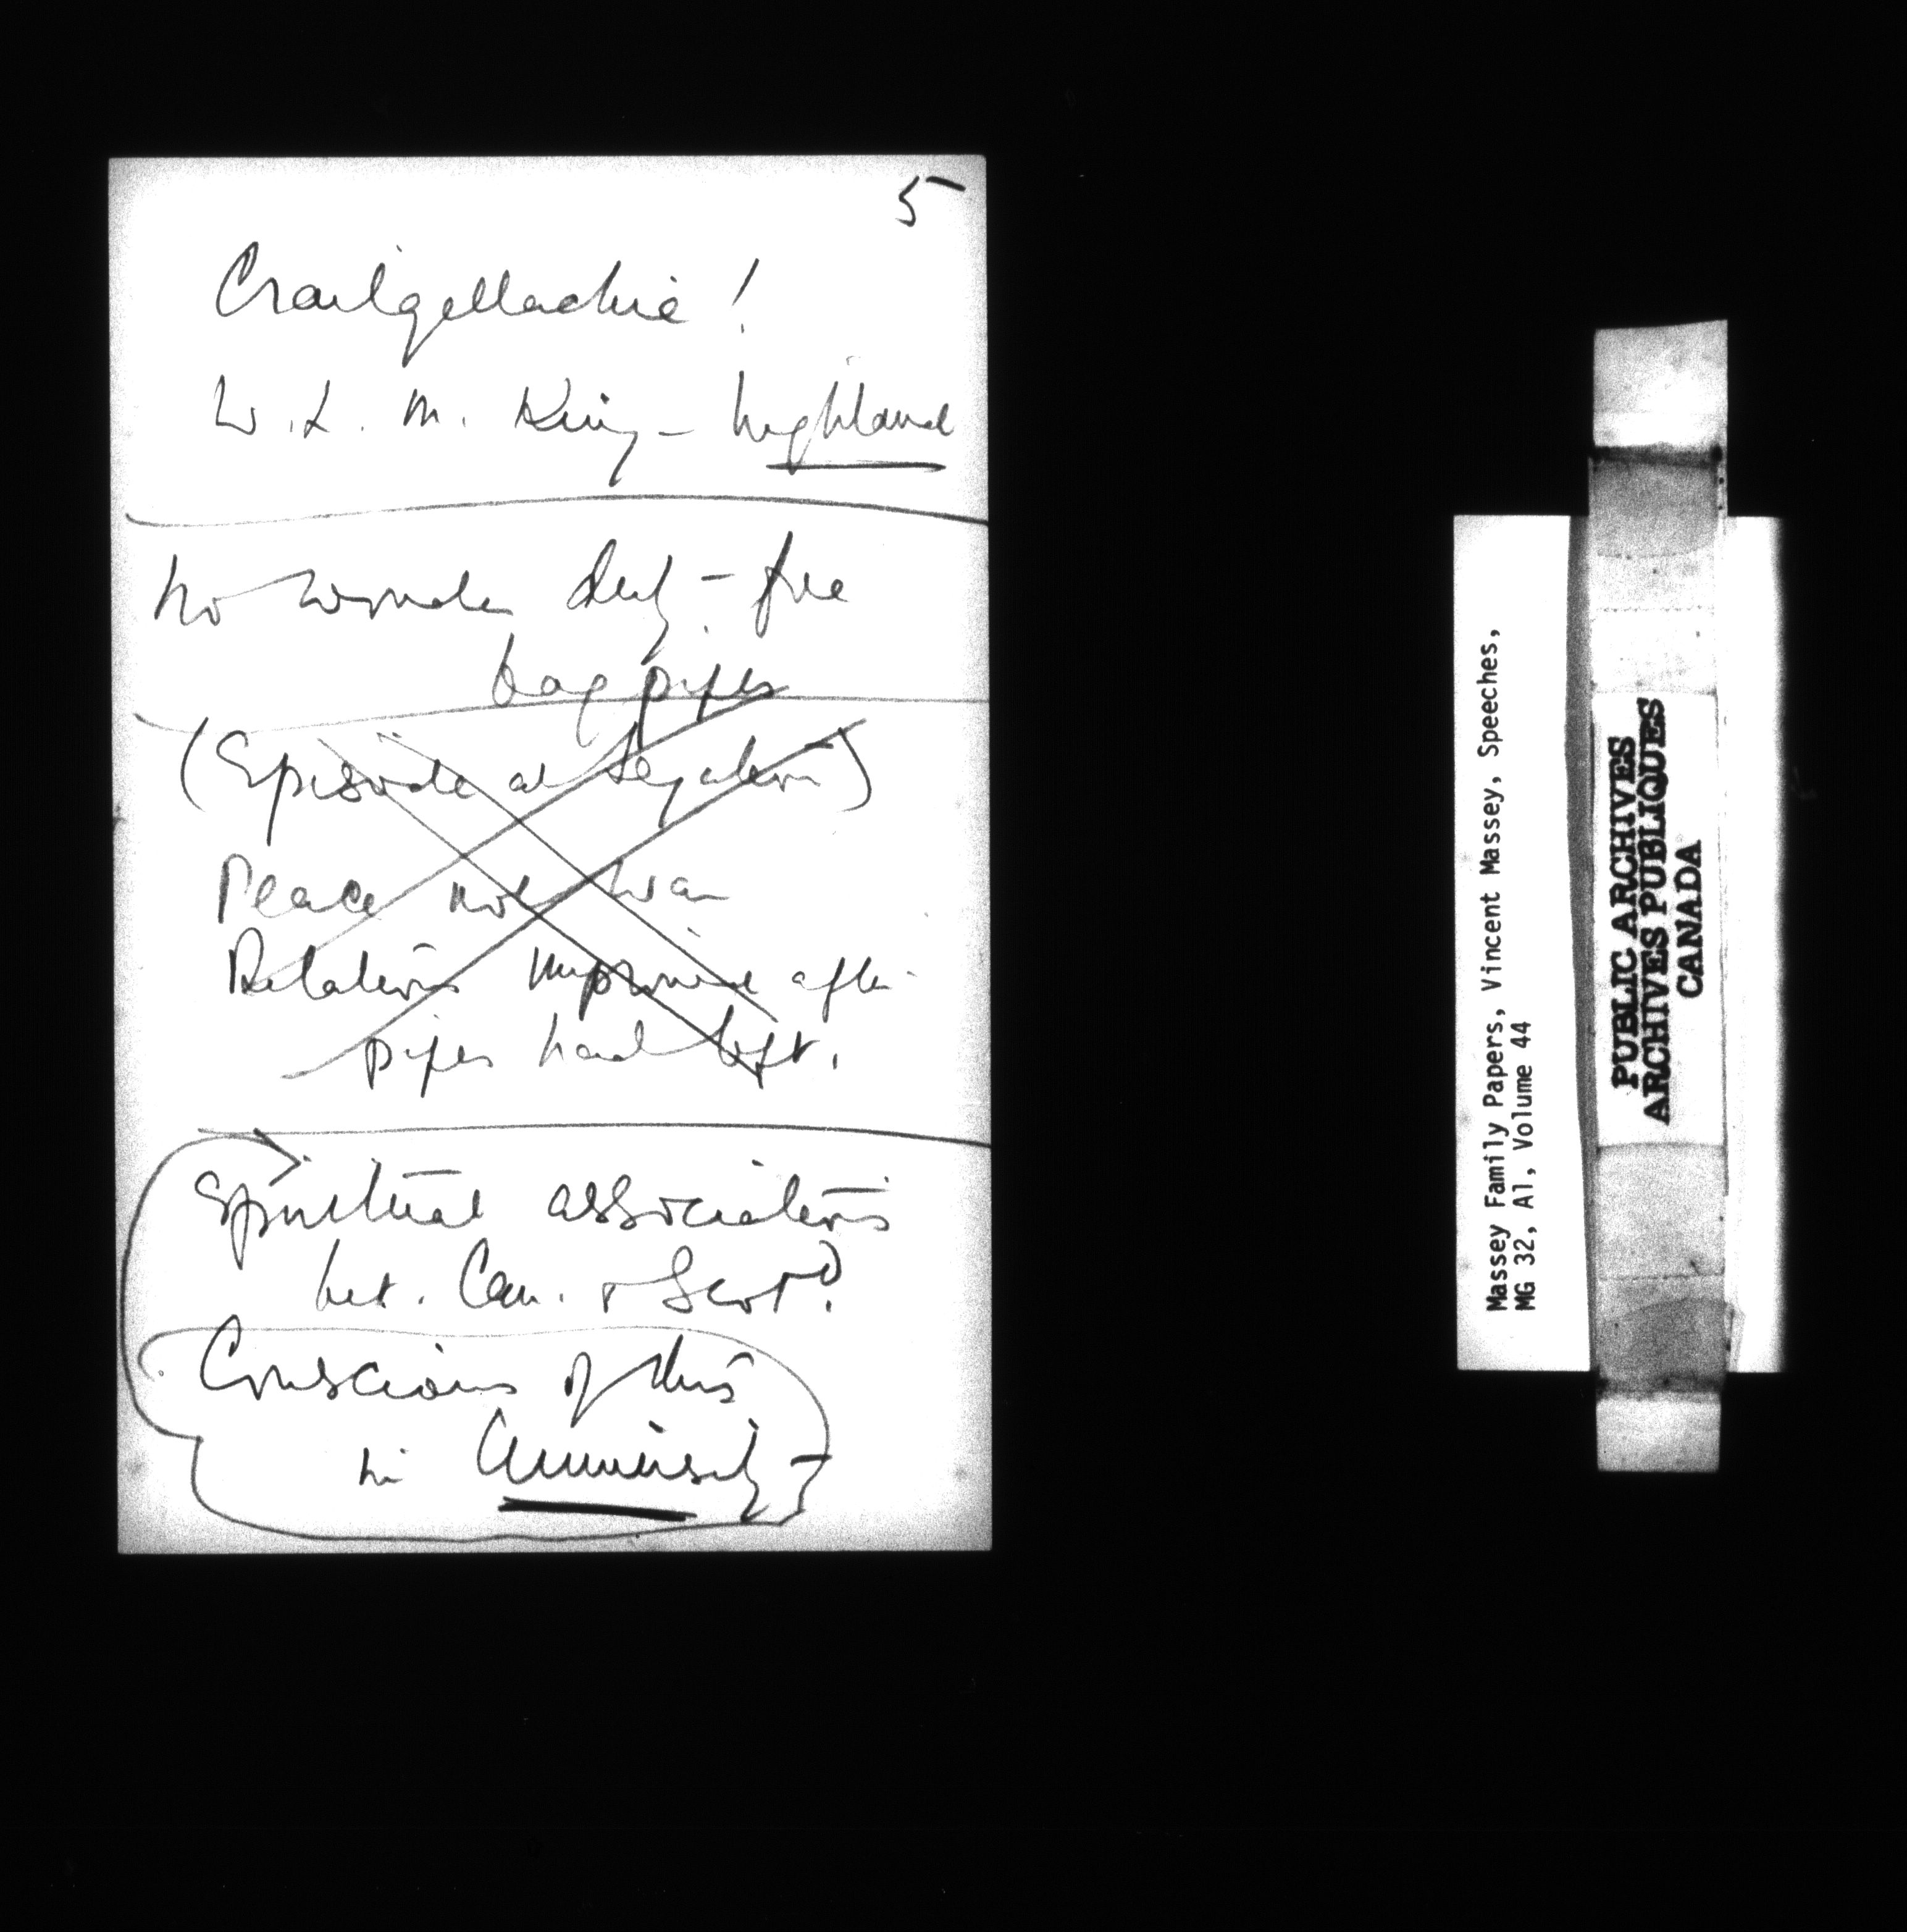 5
Craigellachie!
W. L. M. King - highland
No wonder duty-free
bagpipes
(Episode at Legation)
Peace not war
Relations improved after
pipes had left.
Spiritual associations
bet. Can. & Scotd.
Conscious of this
in University -
Massey Family Papers, Vincent Massey, Speeches,
MG 32, A1, Volume 44
PUBLIC ARCHIVES
ARCHIVES PUBLIQUES
CANADA